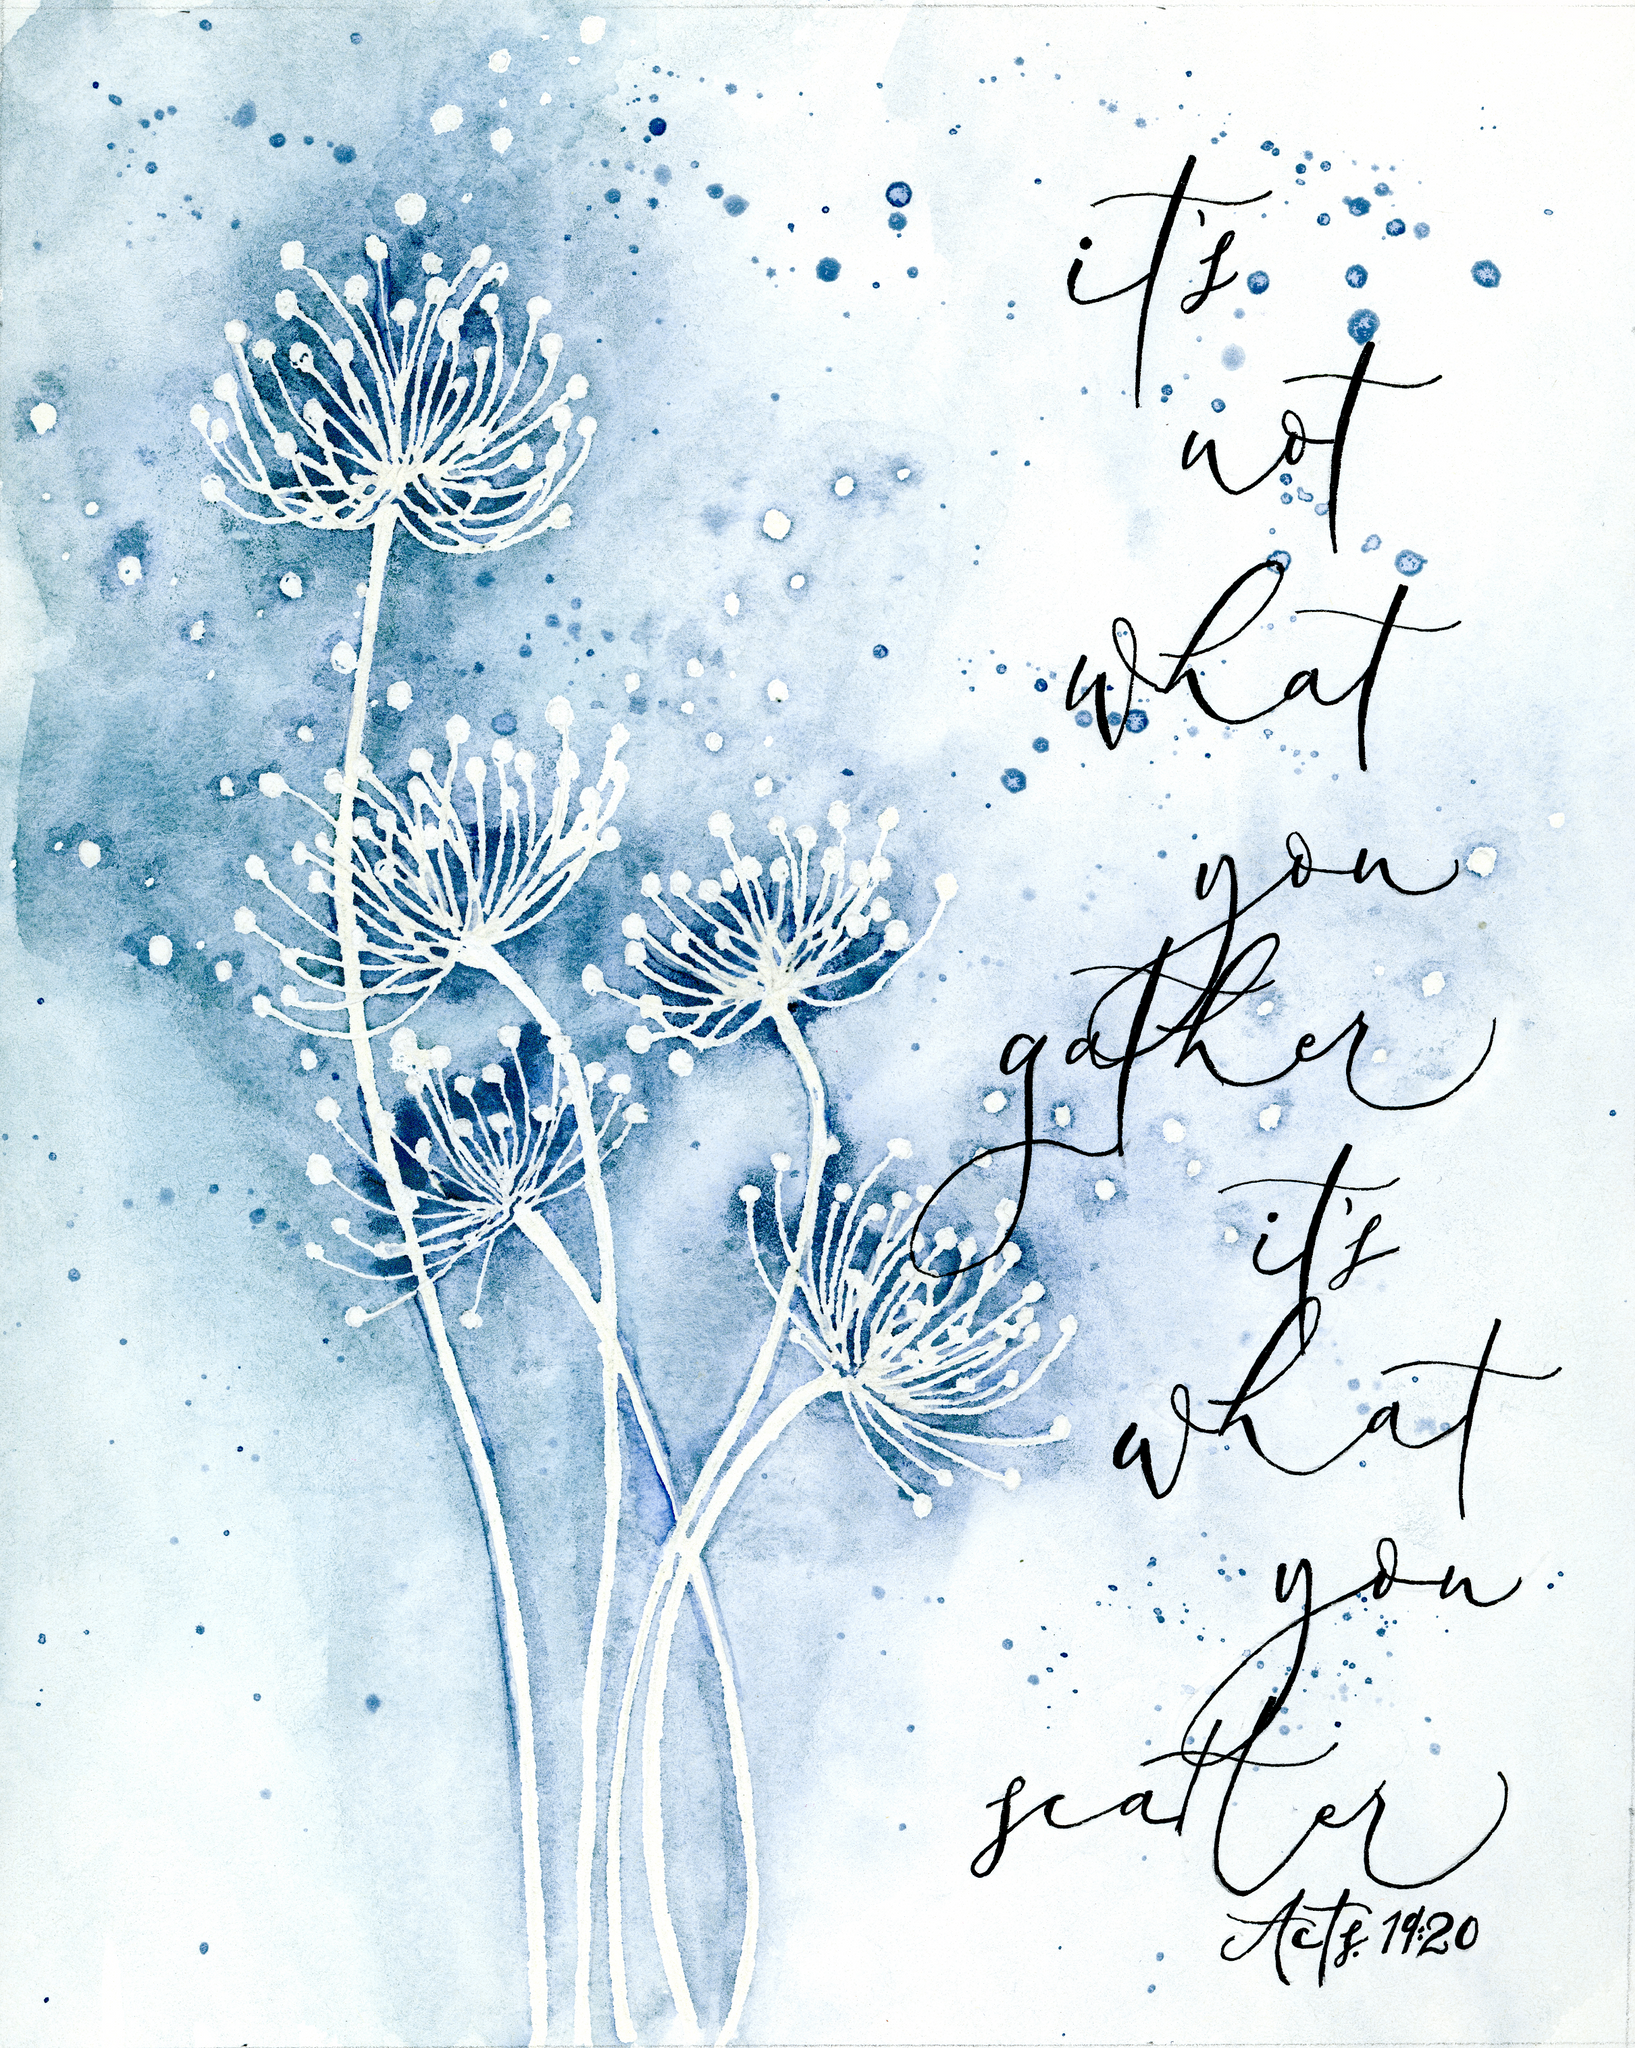 it's
not
what
you
gather
it's
what
you
scatter
Acts. 19:20